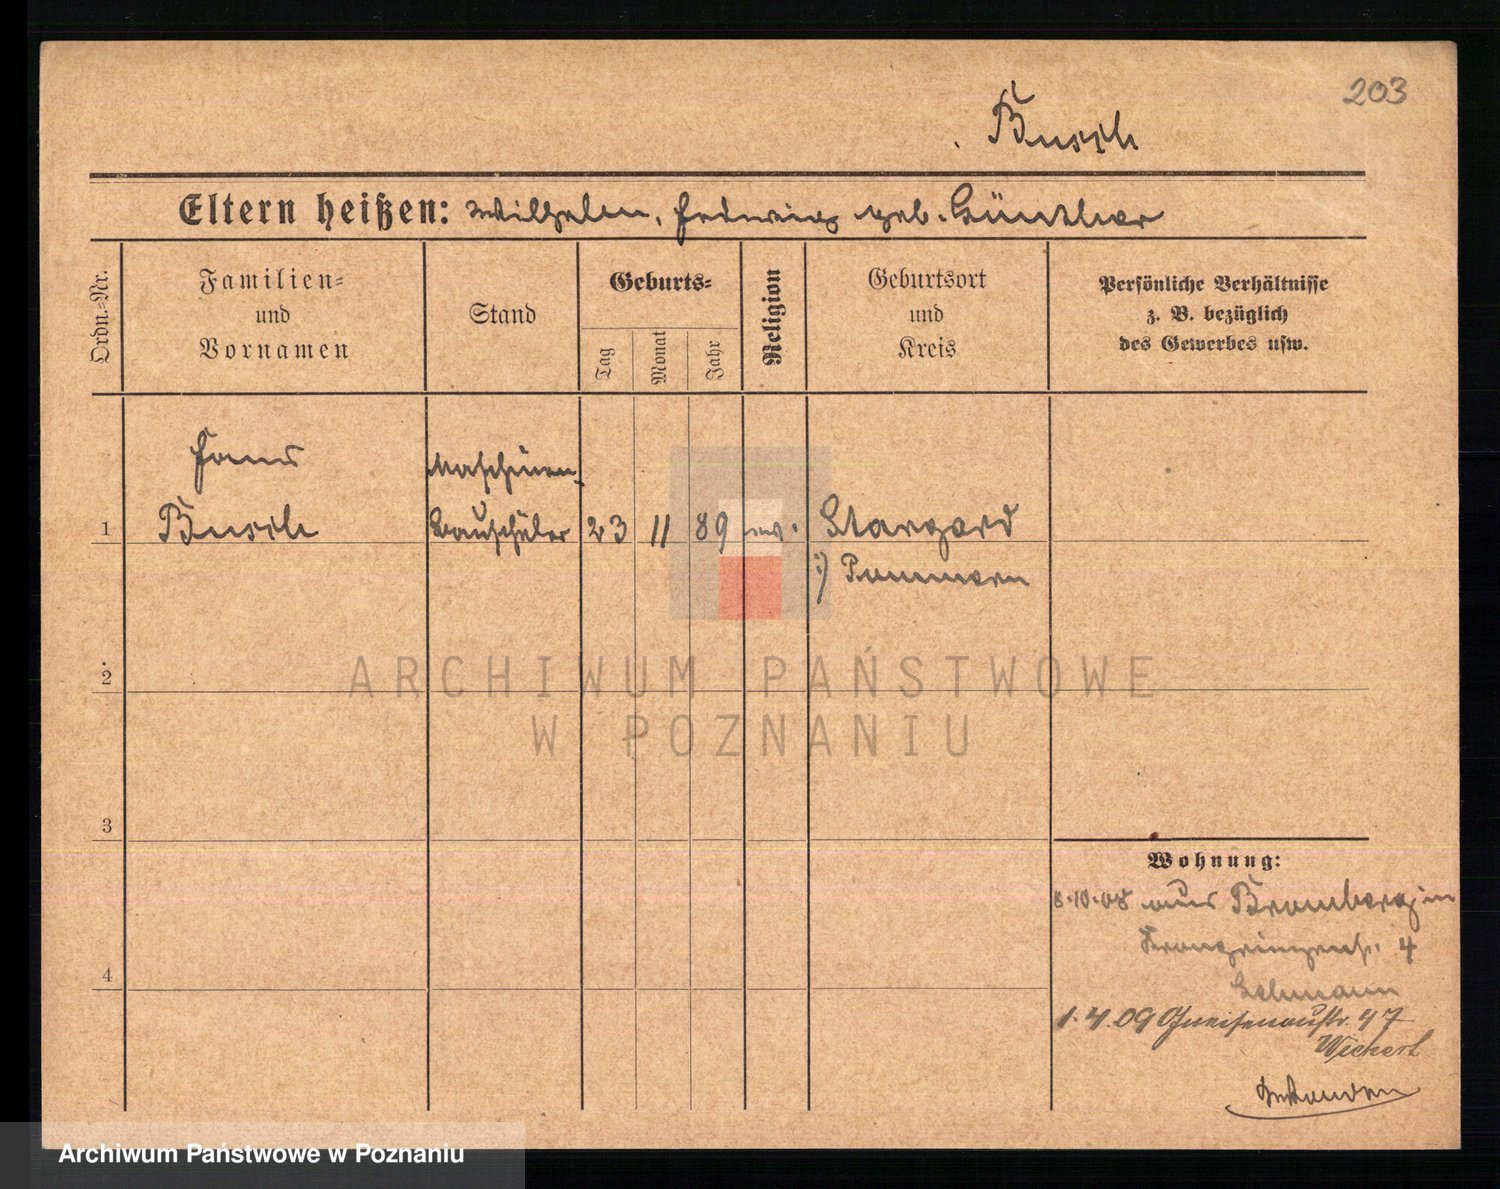 203
Busch
Eltern heißen: Wilhelm, Hedwig geb. Günther
Ordn.-Nr.
Familien-
und
Vornamen
Stand
Geburts-
Tag
Monat
Jahr
Religion
Geburtsort
und
Kreis
Persönliche Verhältnisse
z. B. bezüglich
des Gewerbes usw.
Hans
Busch
Maschinen-
bauschüler
1
23
11
89
Stargard
i/ Pommern
2
3
4
Wohnung:
8.10.08 aus Bromberg in
Kronprinzenstr. 4
Lehmann
1.4.09 Gneisenaustr. 47
Wickert
ARCHIWUM PAŃSTWOWE
W POZNANIU
Archiwum Państwowe w Poznaniu